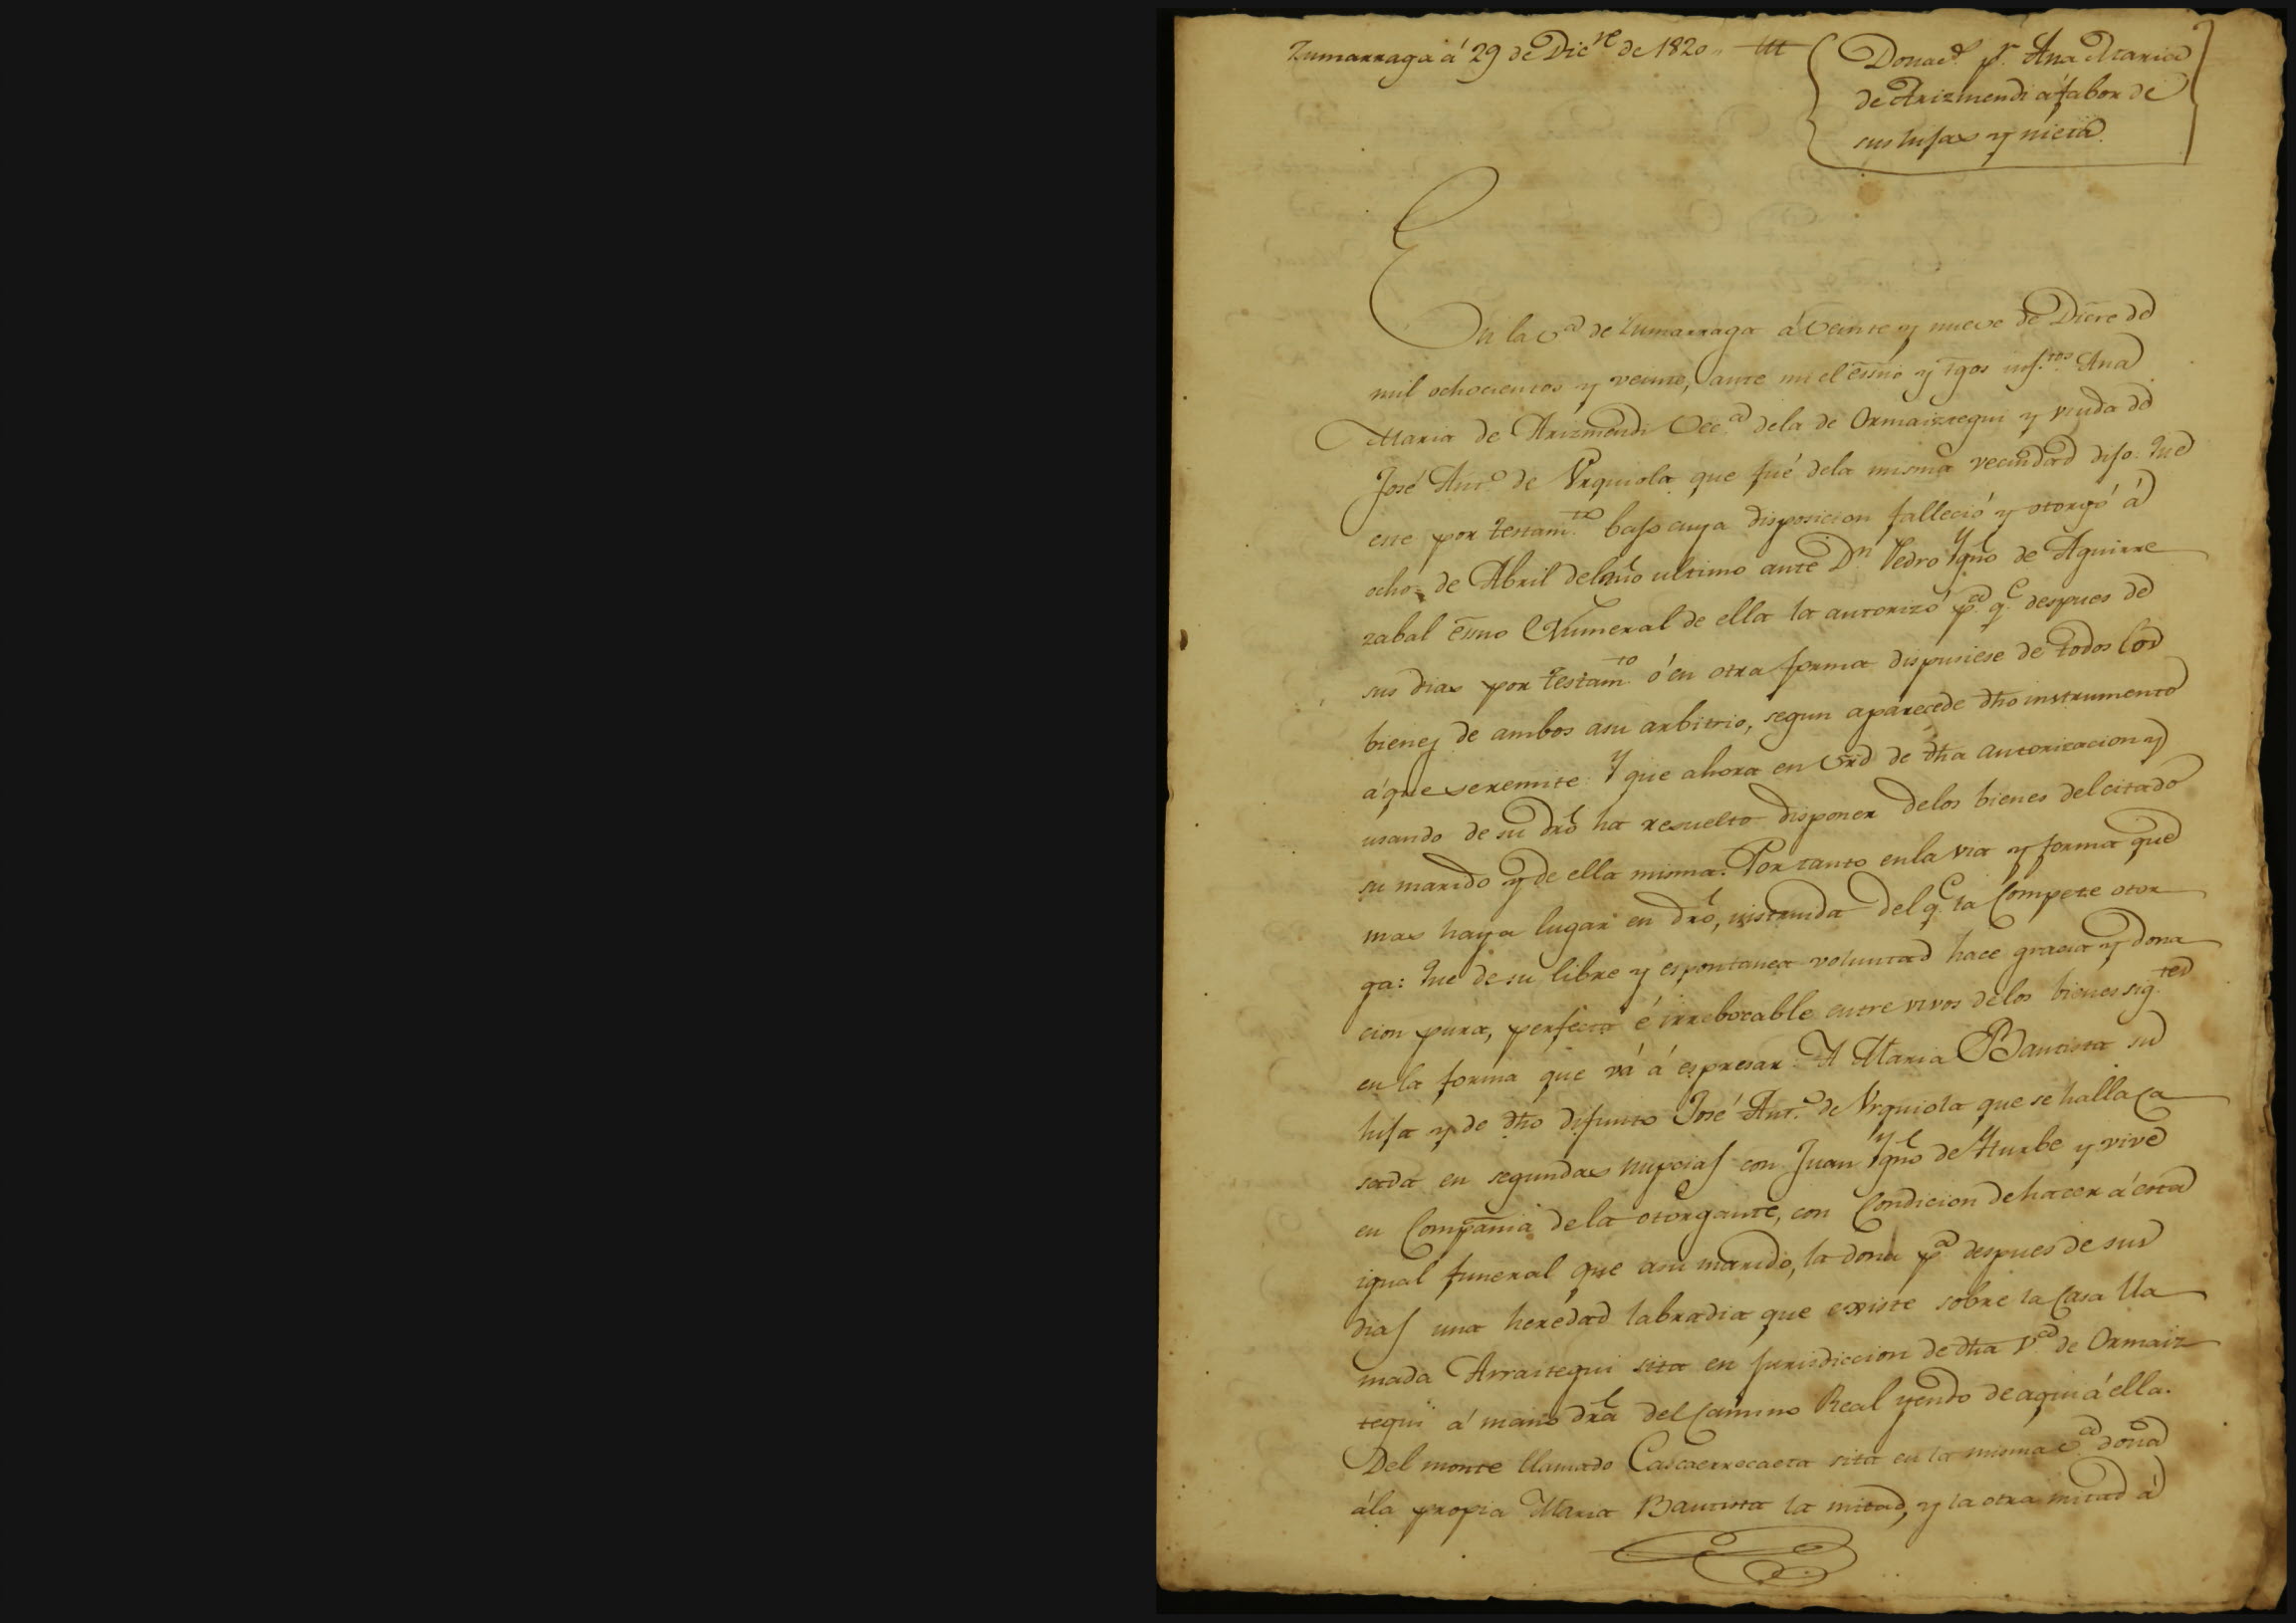 Zumarraga á 29 de Dic.re de 1820
Donac.n p.r Ana Maria
de Arizmendi á fabor de
sus hijas y nieta.
En la V.a de Zumarraga á Veinte y nueve de Dicre de
mil ochocientos y veinte, ante mi el essno y tgos inf.tos Ana
Maria de Arizmendi Vec.a dela de Ormaiztegui y viuda de
José Ant.o de Vrquiola que fué dela misma vecindad dijo: Que
este por testam.to bajo cuya disposicion falleció y otorgó á
ocho de Abril del año ultimo ante D.n Pedro Ygno de Aguirre
zabal essno Numeral de ella la autorizó p.a q.e despues de
sus dias por testam.to ó en otra forma dispusiese de todos los
bienes de ambos asu arbitrio, segun aparecede dho instrumento
á que se remite: Y que ahora en Vrd de dha autorizacion y
usando de su dro ha resuelto disponer delos bienes del citado
su marido y de ella misma. Por tanto enla via y forma que
mas haya lugar en dro, instruida del q.e la Compete otor
ga: Que de su libre y espontanea voluntad hace gracia y dona
cion pura, perfecta é irrebocable entre vivos delos bienes sig.tes
en la forma que vá á espresar: A Maria Bautista su
hija y de dho difunto José Ant.o de Vrquiola que se halla ca
sada en segundas nupcias con Juan Ygno de Yturbe y vive
en Compania dela otorgante, con Condicion de hacer á esta
igual funeral que asu marido, la dona p.a despues de sus
dias una heredad labradia que existe sobre la Casa lla
mada Arraitegui sita en jurisdiccion de dha V.a de Ormaiz
tegui á mano dra del Camino Real yendo de aqui á ella.
Del monte llamado Cascaerrecaeta sita en la misma v.a dona
ála propia Maria Bautista la mitad, y la otra mitad á